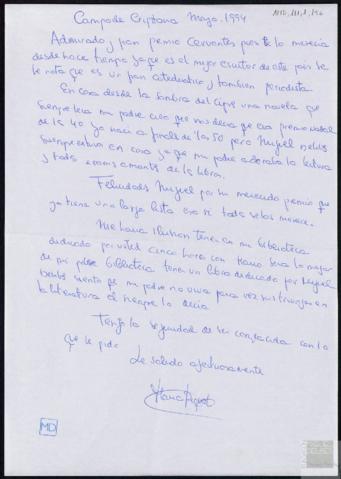 Campo de Criptana Mayo. 1994
Admirado y gran premio Cervantes pues te lo merecia
desde hace tiempo ya que es el mejor escritor de este pais se
le nota que es un gran catedratico y tambien periodista
En casa desde la sombra del cipres una novela que
siempre leia mi padre creo que nos decia que era premio nadal
de los 40 yo naci a finales de los 50 pero Miguel Delibes
siempre estuvo en casa ya que mi padre adoraba la lectura
y todos eramos amantes de los libros.
Felicidades Miguel por tu merecido premio que
ya tiene una larga lista en si todos se los merece.
Me haria ilusion tener en mi biblioteca
dedicado por usted cinco horas con Mario sera lo mejor
de mi pobre biblioteca tener un libro dedicado por Miguel
Delibes siento que mi padre no viva para ver sus triunfos en
la literatura el siempre lo decia
Tengo la seguridad de ser complacida con lo
que le pido
Le saluda afectuosamente
MD